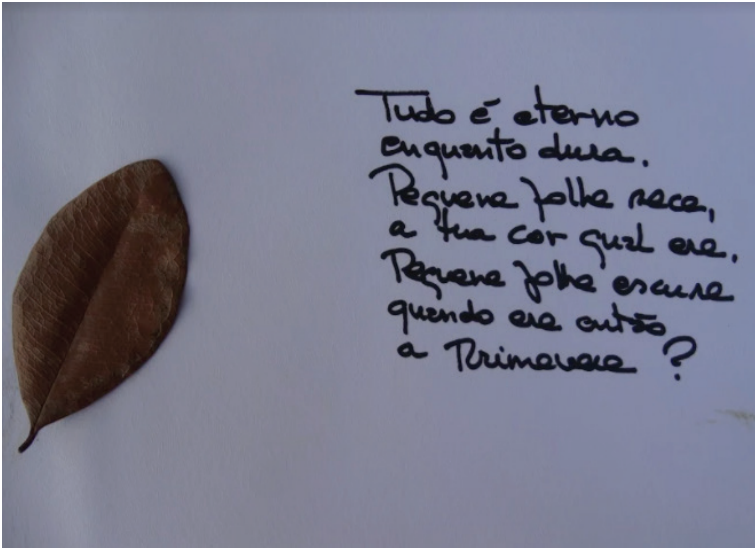 Tudo é eterno
enquanto dura.
Pequena folha seca,
a tua cor qual era.
Pequena folha escura
quando era então
a Primavera?